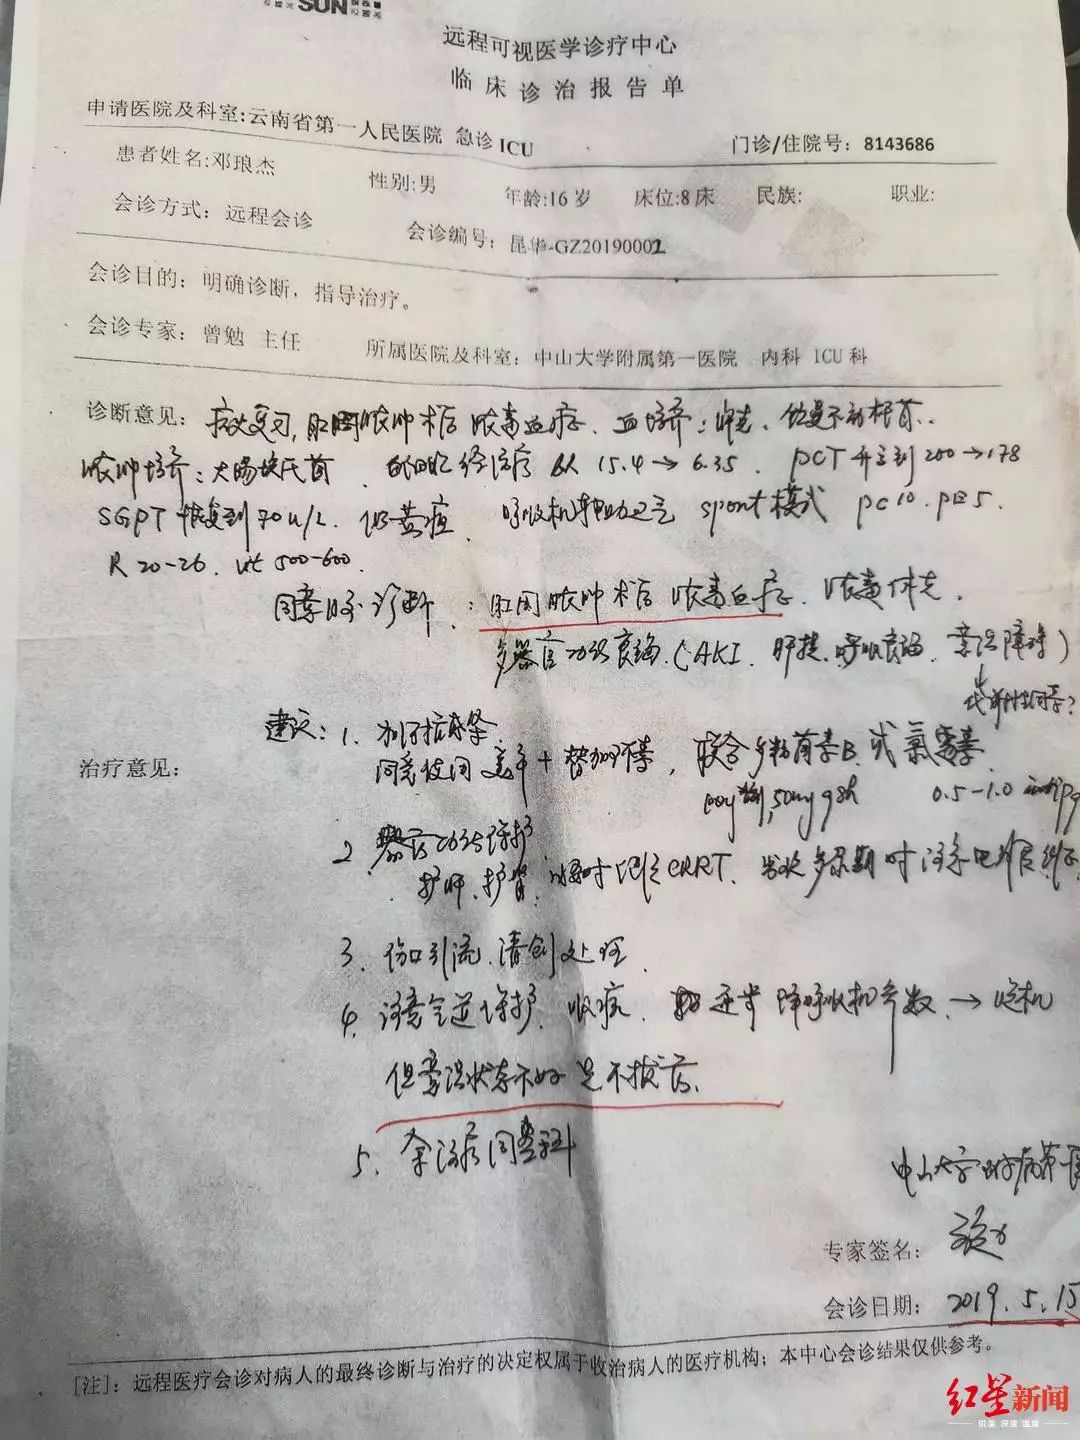 SUN
远程可视医学诊疗中心
临床诊治报告单
申请医院及科室:云南省第一人民医院 急诊 ICU 门诊/住院号：8143686
患者姓名:邓琅杰 性别:男 年龄:16岁 床位:8床 民族: 职业:
会诊方式：远程会诊 会诊编号：昆华-GZ20190002
会诊目的：明确诊断，指导治疗。
会诊专家：曾勉 主任 所属医院及科室：中山大学附属第一医院 内科 ICU科
诊断意见：病史复习，肛周脓肿术后 脓毒血症、血培养：
脓肿培养：大肠埃氏菌 经治疗 从 15.4→6.35． PCT 升高到 200→178
SGPT 恢复到 70u/L． 仍黄疸． 呼吸机辅助 spont模式 pc 10．
R 20-26． Vt 500-600．
诊断：肛周脓肿术后 脓毒血症、脓毒休克．
多器官功能衰竭（AKI、肝损、呼吸衰竭、意识障碍）
建议：1、抗感染
治疗意见：
同意使用 + 替加环素，联合多粘菌素B 或 氯霉素
50mg q8h 0.5-1.0
2 器官功能保护
护肝、护肾， CRRT． 多尿期时注意电解质
3、伤口引流、清创处理．
4、注意气道保护、吸痰、逐步降呼吸机参数、→脱机
但意识状态不好 先不拔管．
5、余治疗同贵科
中山大学附属第一
专家签名：
会诊日期：2019.5.15
[注]：远程医疗会诊对病人的最终诊断与治疗的决定权属于收治病人的医疗机构；本中心会诊结果仅供参考。
红星新闻
锐度 深度 温度